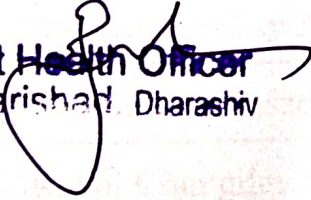 t Health Officer
arishad Dharashiv